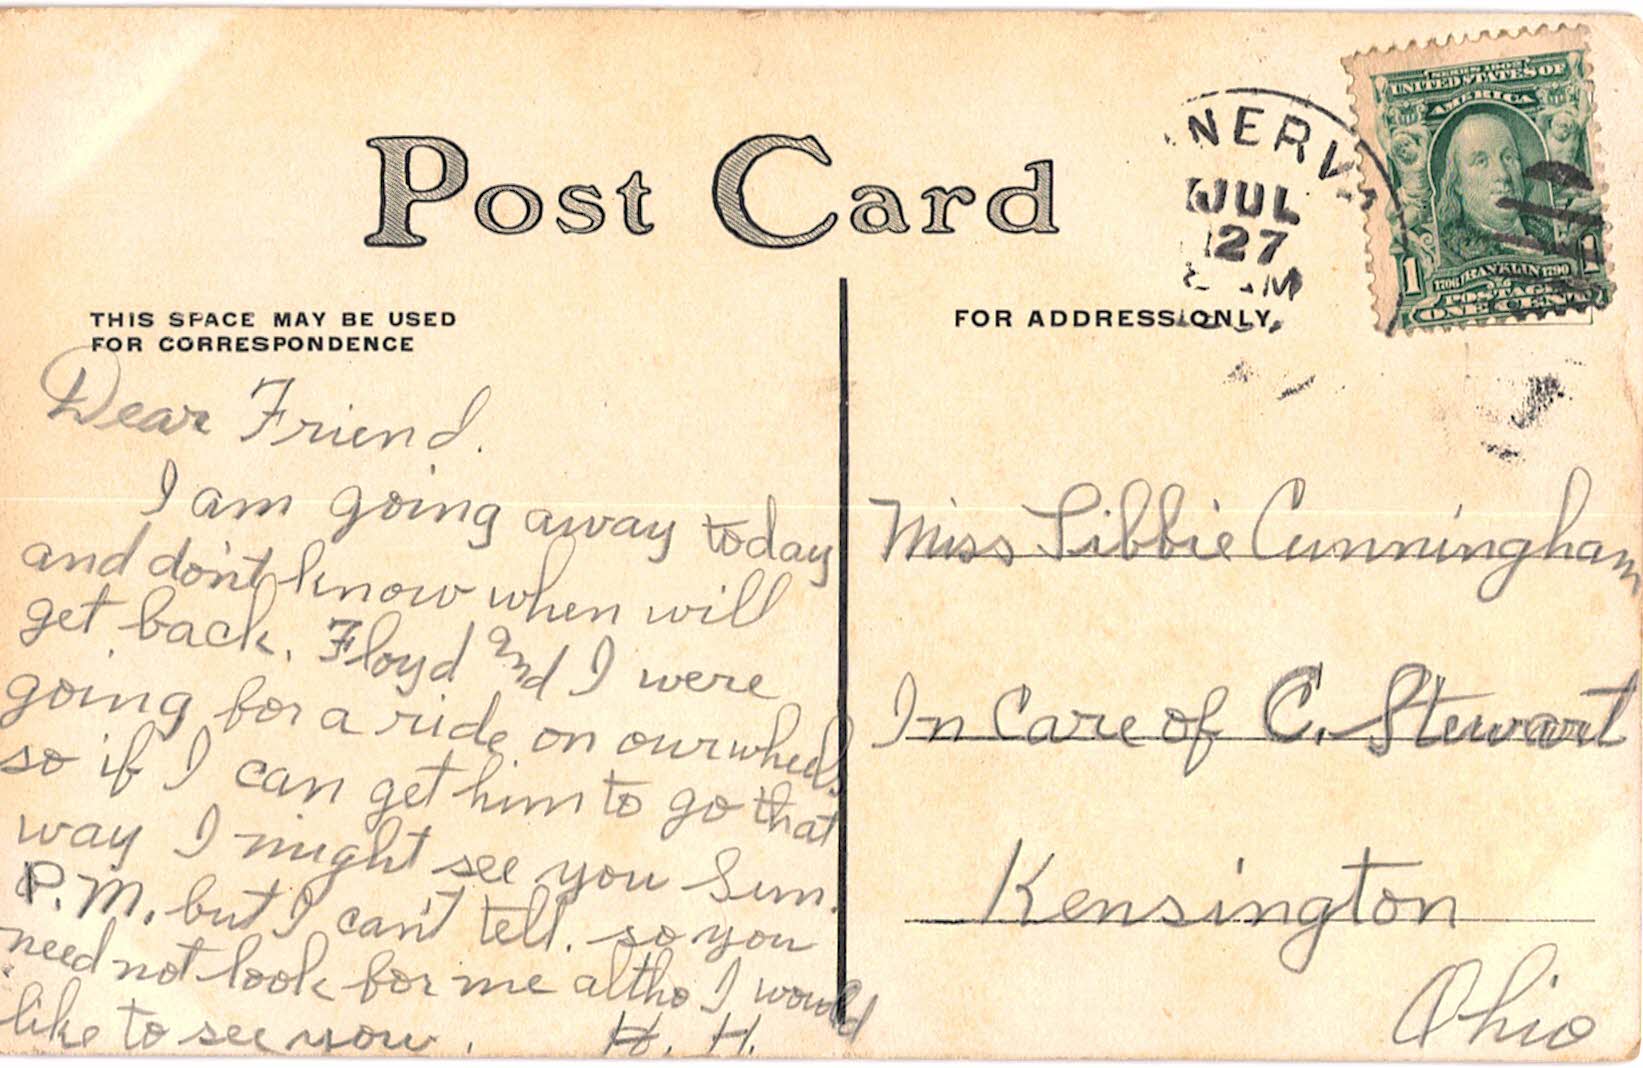 Post Card
THIS SPACE MAY BE USED
FOR CORRESPONDENCE
Dear Friend.
I am going away today
and don't know when will
get back. Floyd and I were
going for a ride on our wheels
so if I can get him to go that
way I might see you Sun.
P.M. but I can't tell. so you
need not look for me altho I would
like to see you.
H. H.
NERV
JUL
27
M
SERIES 1902
UNITED STATES OF
AMERICA
1 1
1706 FRANKLIN 1790
POSTAGE
ONE CENT
FOR ADDRESS ONLY.
Miss Libbie Cunningham
In Care of C. Stewart
Kensington
Ohio